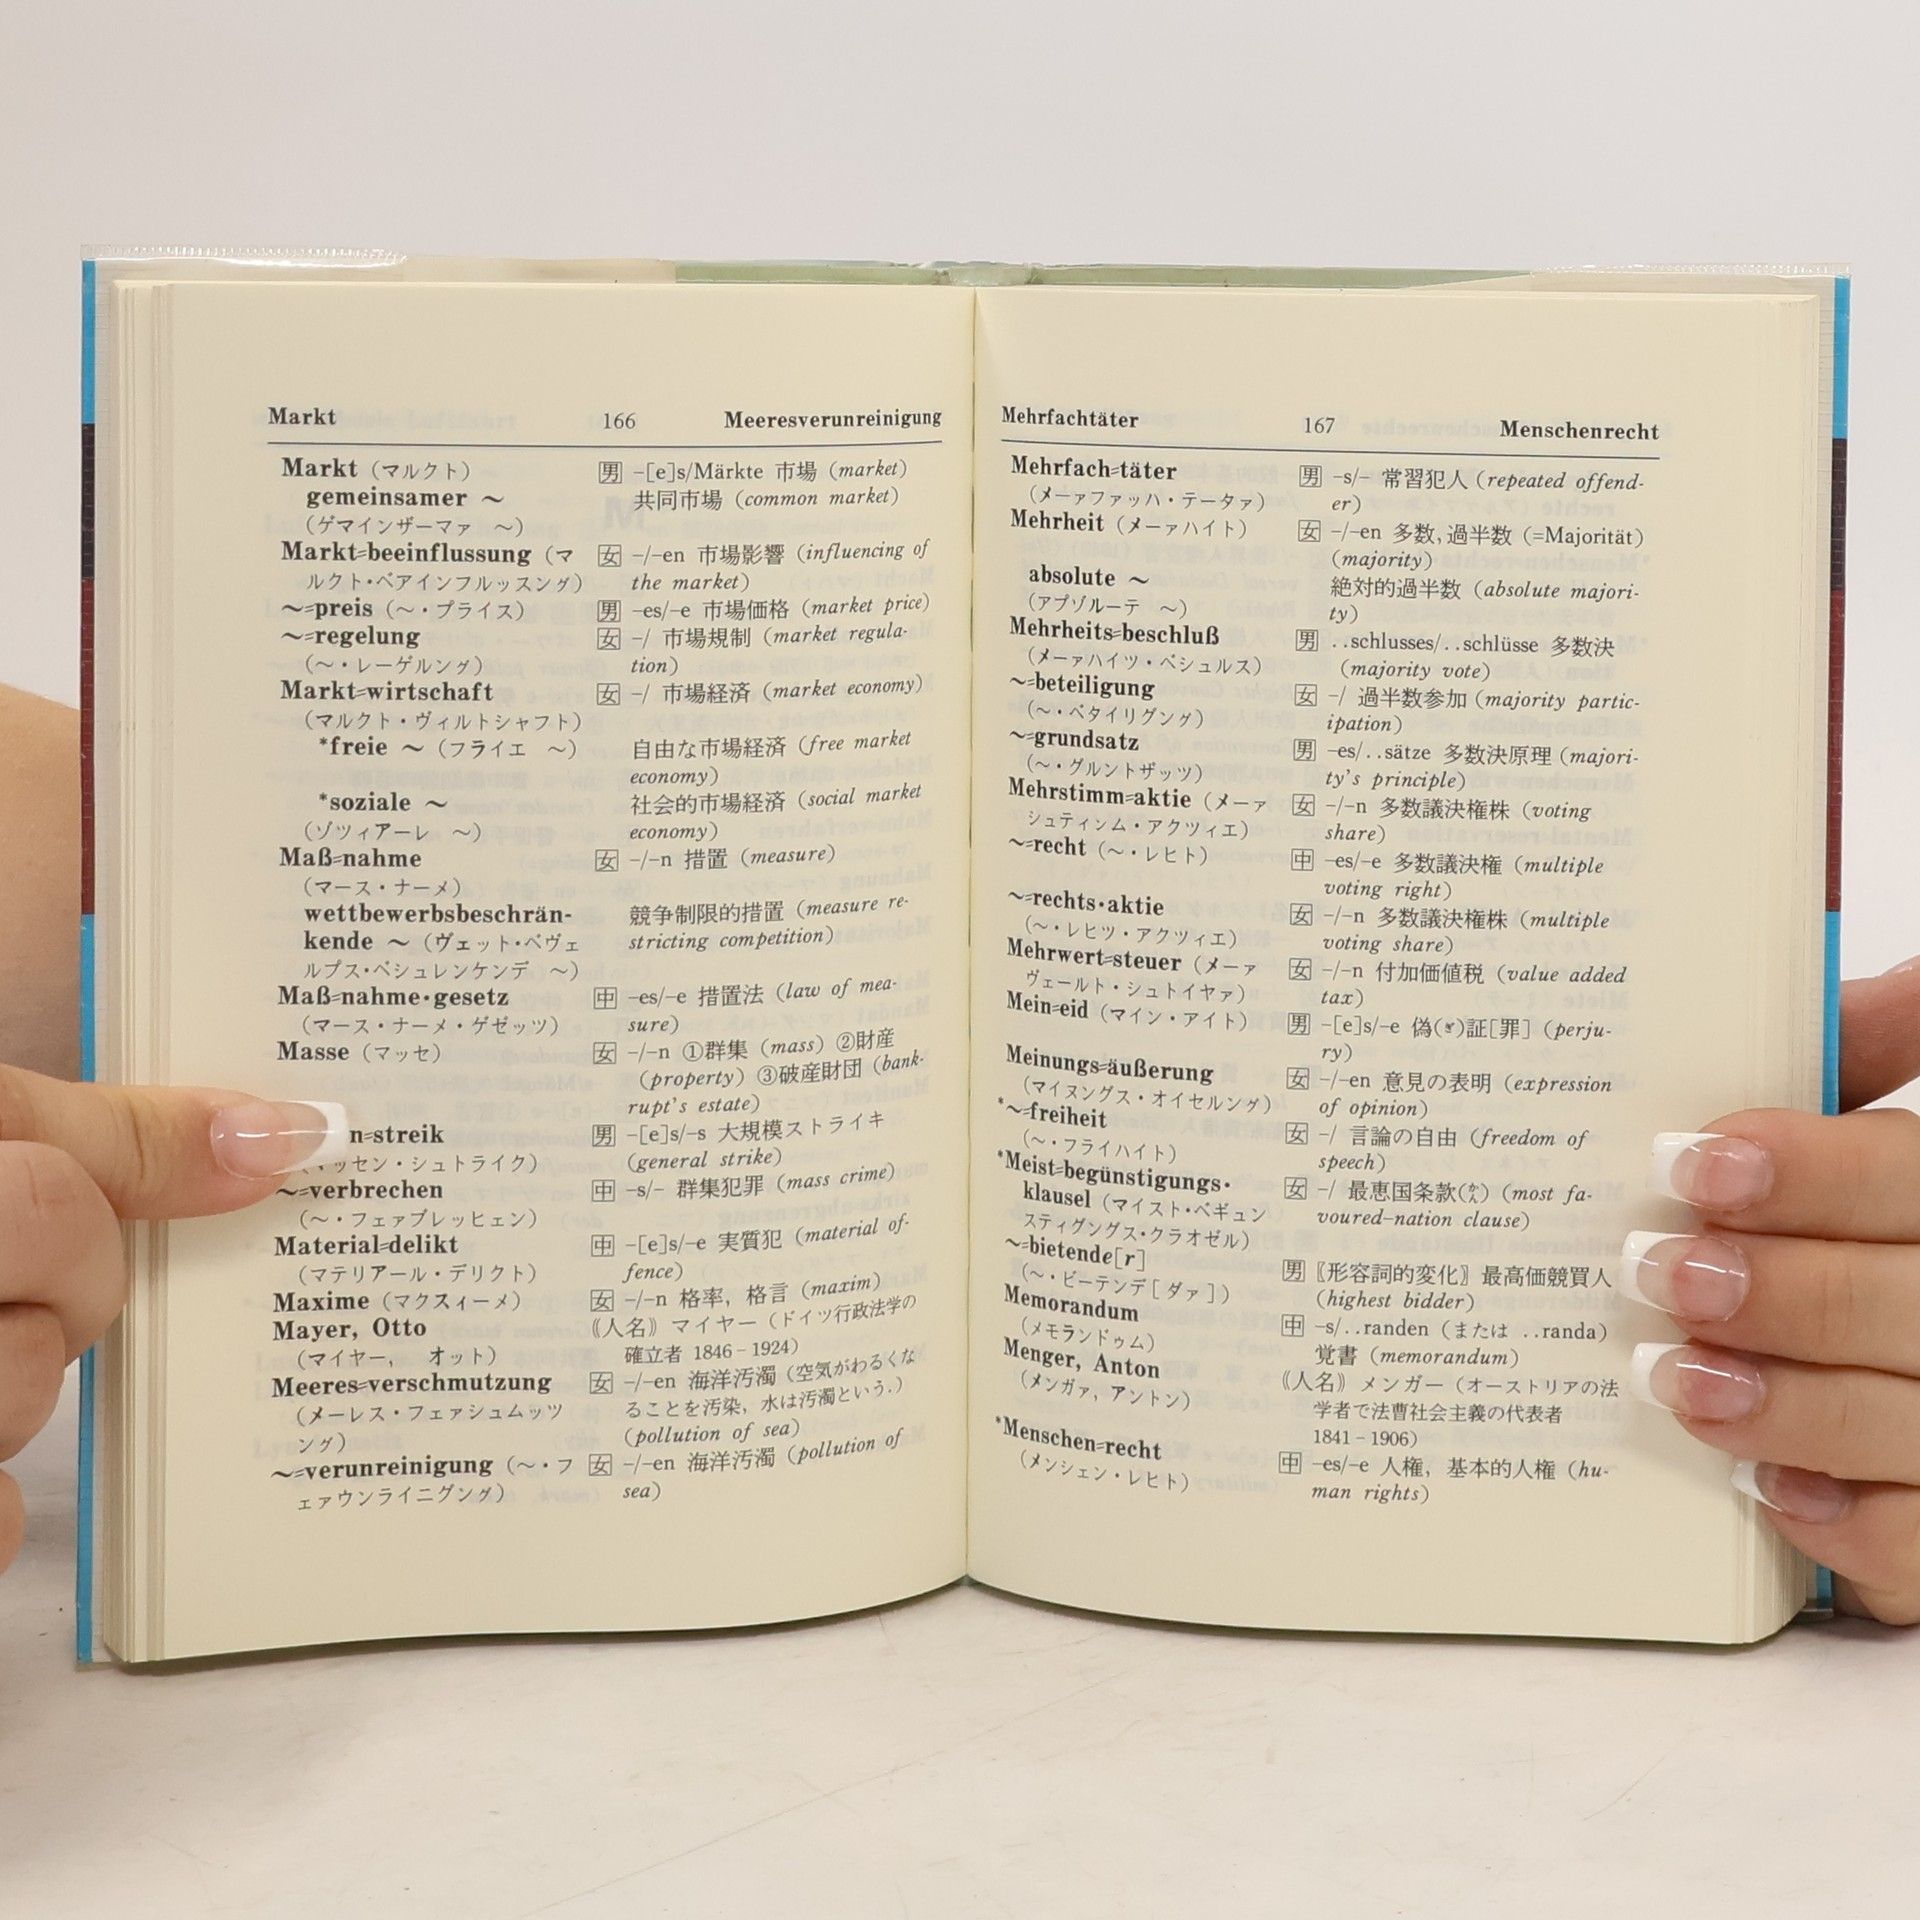 Markt 166 Meeresverunreinigung
Markt (マルクト) 男 -[e]s/Märkte 市場 (market)
gemeinsamer ～ 共同市場 (common market)
(ゲマインザーマァ ～)
Markt=beeinflussung (マ 女 -/-en 市場影響 (influencing of
ルクト・ベアインフルッスング) the market)
～=preis (～・プライス) 男 -es/-e 市場価格 (market price)
～=regelung 女 -/ 市場規制 (market regula-
(～・レーゲルング) tion)
Markt=wirtschaft 女 -/ 市場経済 (market economy)
(マルクト・ヴィルトシャフト)
*freie ～ (フライエ ～) 自由な市場経済 (free market
economy)
*soziale ～ 社会的市場経済 (social market
(ゾツィアーレ ～) economy)
Maß=nahme 女 -/-n 措置 (measure)
(マース・ナーメ)
wettbewerbsbeschrän- 競争制限的措置 (measure re-
kende ～ (ヴェット・ベヴェ stricting competition)
ルプス・ベシュレンケンデ ～)
Maß=nahme・gesetz 中 -es/-e 措置法 (law of mea-
(マース・ナーメ・ゲゼッツ) sure)
Masse (マッセ) 女 -/-n ①群集 (mass) ②財産
(property) ③破産財団 (bank-
rupt's estate)
n=streik 男 -[e]s/-s 大規模ストライキ
(マッセン・シュトライク) (general strike)
～=verbrechen 中 -s/- 群集犯罪 (mass crime)
(～・フェァブレッヒェン)
Material=delikt 中 -[e]s/-e 実質犯 (material of-
(マテリアール・デリクト) fence)
Maxime (マクスィーメ) 女 -/-n 格率, 格言 (maxim)
Mayer, Otto 《人名》 マイヤー (ドイツ行政法学の
(マイヤー, オット) 確立者 1846-1924)
Meeres=verschmutzung 女 -/-en 海洋汚濁 (空気がわるくな
(メーレス・フェァシュムッツ ることを汚染, 水は汚濁という.)
ング) (pollution of sea)
～=verunreinigung (～・フ 女 -/-en 海洋汚濁 (pollution of
ェァウンライニグング) sea)
Mehrfachtäter 167 Menschenrecht
Mehrfach=täter 男 -s/- 常習犯人 (repeated offend-
(メーァファッハ・テータァ) er)
Mehrheit (メーァハイト) 女 -/-en 多数, 過半数 (=Majorität)
(majority)
absolute ～ 絶対的過半数 (absolute majori-
(アプゾルーテ ～) ty)
Mehrheits=beschluß 男 ..schlusses/..schlüsse 多数決
(メーァハイツ・ベシュルス) (majority vote)
～=beteiligung 女 -/ 過半数参加 (majority partic-
(～・ベタイリグング) ipation)
～=grundsatz 男 -es/..sätze 多数決原理 (majori-
(～・グルントザッツ) ty's principle)
Mehrstimm=aktie (メーァ 女 -/-n 多数議決権株 (voting
シュティンム・アクツィエ) share)
～=recht (～・レヒト) 中 -es/-e 多数議決権 (multiple
voting right)
～=rechts・aktie 女 -/-n 多数議決権株 (multiple
(～・レヒツ・アクツィエ) voting share)
Mehrwert=steuer (メーァ 女 -/-n 付加価値税 (value added
ヴェールト・シュトイヤァ) tax)
Mein=eid (マイン・アイト) 男 -[e]s/-e 偽(ぎ)証[罪] (perju-
ry)
Meinungs=äußerung 女 -/-en 意見の表明 (expression
(マイヌングス・オイセルング) of opinion)
*～=freiheit 女 -/ 言論の自由 (freedom of
(～・フライハイト) speech)
*Meist=begünstigungs・ 女 -/ 最恵国条款(かん) (most fa-
klausel (マイスト・ベギュン voured-nation clause)
スティグングス・クラオゼル)
～=bietende[r] 男 《形容詞的変化》 最高価競買人
(～・ビーテンデ[ダァ]) (highest bidder)
Memorandum 中 -s/..randen (または ..randa)
(メモランドゥム) 覚書 (memorandum)
Menger, Anton 《人名》 メンガー (オーストリアの法
(メンガァ, アントン) 学者で法曹社会主義の代表者
1841-1906)
*Menschen=recht 中 -es/-e 人権, 基本的人権 (hu-
(メンシェン・レヒト) man rights)